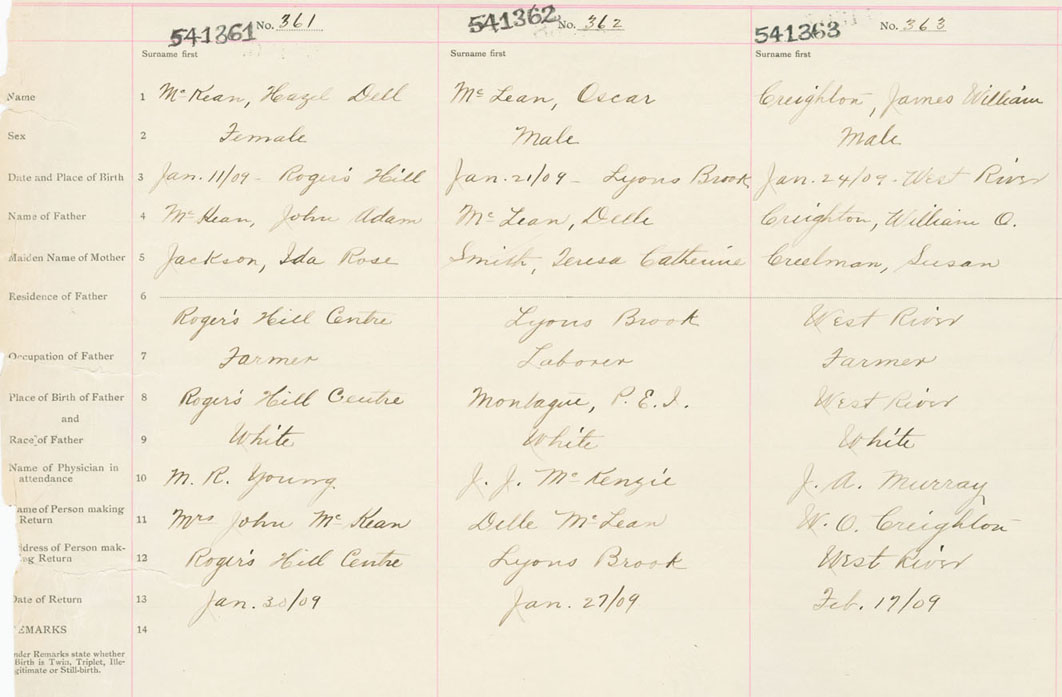 541361 No. 361 541362 No. 362 541363 No. 363
Surname first Surname first Surname first
Name 1 Mc Kean, Hazel Dell Mc Lean, Oscar Creighton, James William
Sex 2 Female Male Male
Date and Place of Birth 3 Jan. 11/09 - Roger's Hill Jan. 21/09 - Lyons Brook Jan. 24/09 - West River
Name of Father 4 Mc Kean, John Adam Mc Lean, Delle Creighton, William O.
Maiden Name of Mother 5 Jackson, Ida Rose Smith, Teresa Catherine Creelman, Susan
Residence of Father 6
Roger's Hill Centre Lyons Brook West River
Occupation of Father 7 Farmer Laborer Farmer
Place of Birth of Father 8 Roger's Hill Centre Montague, P.E.I. West River
and
Race of Father 9 White White White
Name of Physician in
attendance 10 M. R. Young J. J. Mc Kenzie J. A. Murray
ame of Person making
Return 11 Mrs John Mc Kean Delle McLean W. O. Creighton
ddress of Person mak-
ng Return 12 Roger's Hill Centre Lyons Brook West River
Date of Return 13 Jan. 30/09 Jan. 27/09 Feb. 17/09
EMARKS 14
nder Remarks state whether
Birth is Twin, Triplet, Ille-
gitimate or Still-birth.